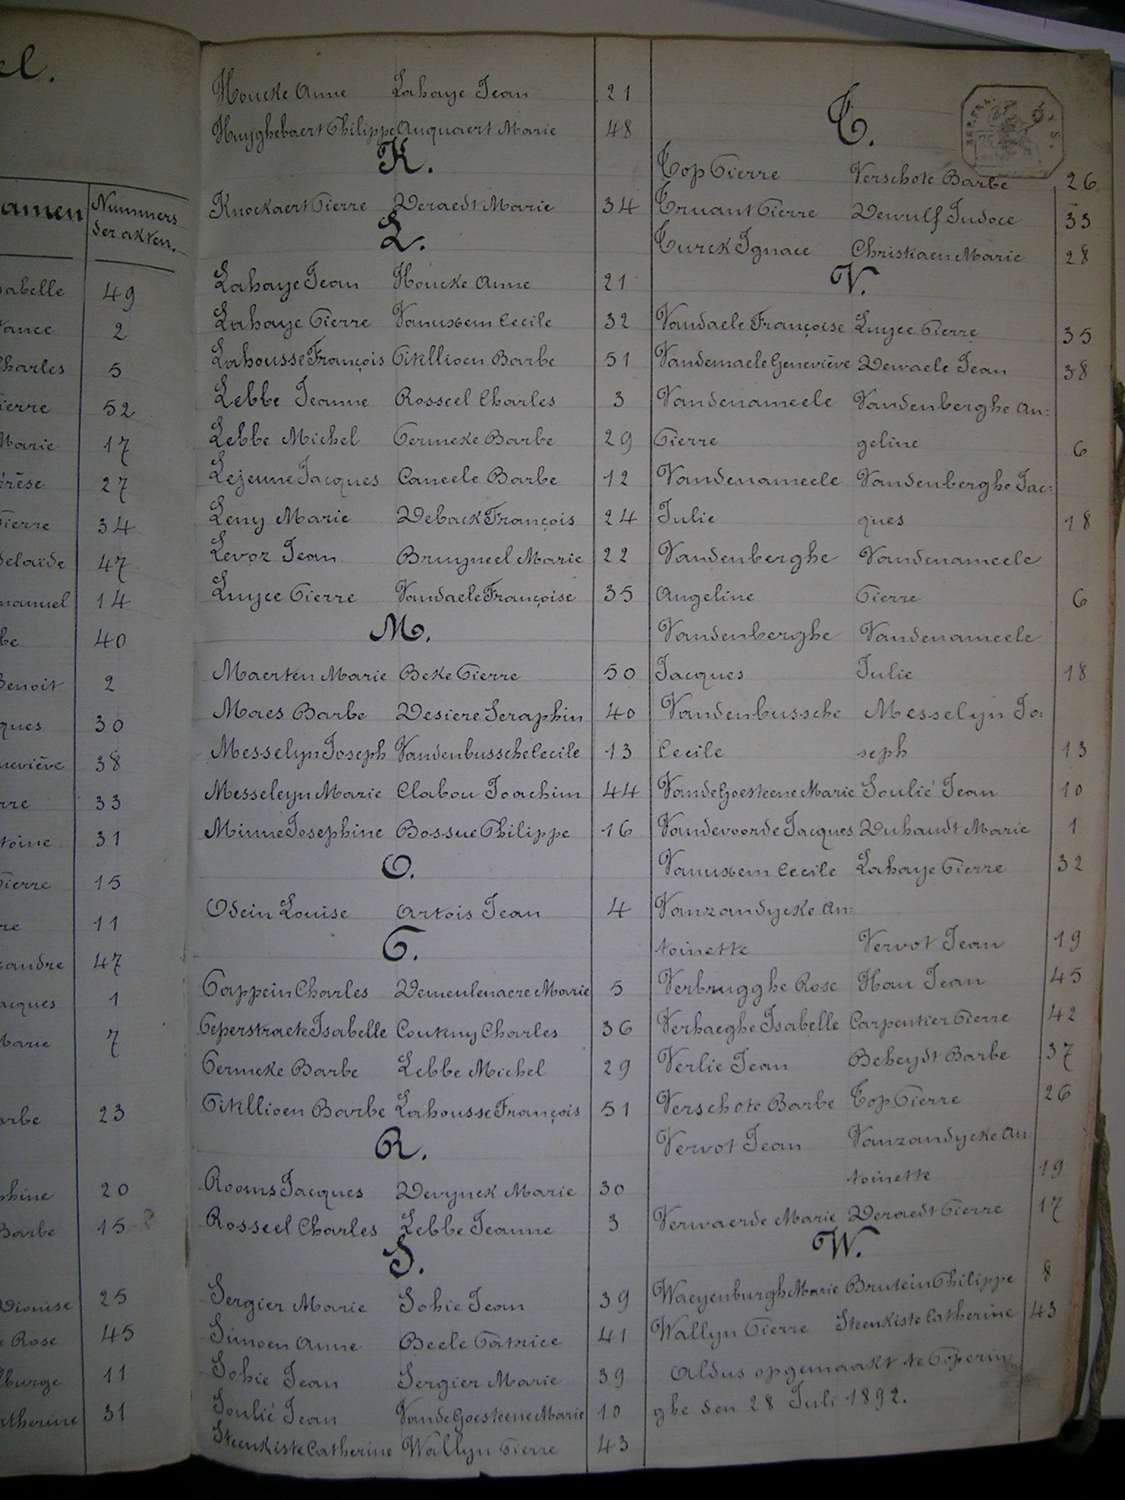 el.
amen
Nummers
der akten.
abelle 49
ance 2
Charles 5
ierre 52
Marie 17
érèse 27
Pierre 34
delaïde 47
manuel 14
be 40
Benoit 2
ques 30
neviève 38
rre 33
toine 31
Pierre 15
re 11
xandre 47
acques 1
Marie 7
arbe 23
phine 20
Barbe 15
Dionise 25
e Rose 45
lburge 11
atherine 31
Houcke Anne Lahaye Jean 21
Huyghebaert Philippe Auquaert Marie 48
K.
Knockaert Pierre Deraedt Marie 34
L.
Lahaye Jean Houcke Anne 21
Lahaye Pierre Vanuxem Cecile 32
Lahousse François Pitillioen Barbe 51
Lebbe Jeanne Rosseel Charles 3
Lebbe Michel Permeke Barbe 29
Lejeune Jacques Caneele Barbe 12
Leny Marie Deback François 24
Levoz Jean Bruyneel Marie 22
Luyce Pierre Vandaele Françoise 35
M.
Maerten Marie Beke Pierre 50
Maes Barbe Desiere Seraphin 40
Messelyn Joseph Vandenbussche Cecile 13
Messeleyn Marie Clabou Joachim 44
Minne Josephine Bossue Philippe 16
O.
Odein Louise Artois Jean 4
P.
Pappein Charles Demeulenaere Marie 5
Peperstraete Isabelle Coutteny Charles 36
Permeke Barbe Lebbe Michel 29
Pitillioen Barbe Lahousse François 51
R.
Rooms Jacques Devynck Marie 30
Rosseel Charles Lebbe Jeanne 3
S.
Sergier Marie Sohie Jean 39
Simoen Anne Beele Patrice 41
Sohie Jean Sergier Marie 39
Soulié Jean Vande Goesteene Marie 10
Steenkiste Catherine Wallyn Pierre 43
T.
Top Pierre Verschote Barbe 26
Truant Pierre Dewulf Judoce 33
Turck Ignace Christiaen Marie 28
V.
Vandaele Françoise Luyce Pierre 35
Vandemaele Geneviève Dewaele Jean 38
Vandenameele Vandenberghe An:
Pierre geline 6
Vandenameele Vandenberghe Jac:
Julie ques 18
Vandenberghe Vandenameele
Angeline Pierre 6
Vandenberghe Vandenameele
Jacques Julie 18
Vandenbussche Messelyn Jo:
Cecile seph 13
Vande Goesteene Marie Soulié Jean 10
Vandevoorde Jacques Duhaudt Marie 1
Vanuxem Cecile Lahaye Pierre 32
Vanzandycke An:
toinette Vervot Jean 19
Verbrugghe Rose Hau Jean 45
Verhaeghe Isabelle Carpentier Pierre 42
Verlie Jean Beheydt Barbe 37
Verschote Barbe Top Pierre 26
Vervot Jean Vanzandycke An
toinette 19
Verwaerde Marie Deraedt Pierre 17
W.
Waeyenburgh Marie Brutein Philippe 8
Wallyn Pierre Steenkiste Catherine 43
Aldus opgemaakt te Poperin
ghe den 28 Juli 1892.